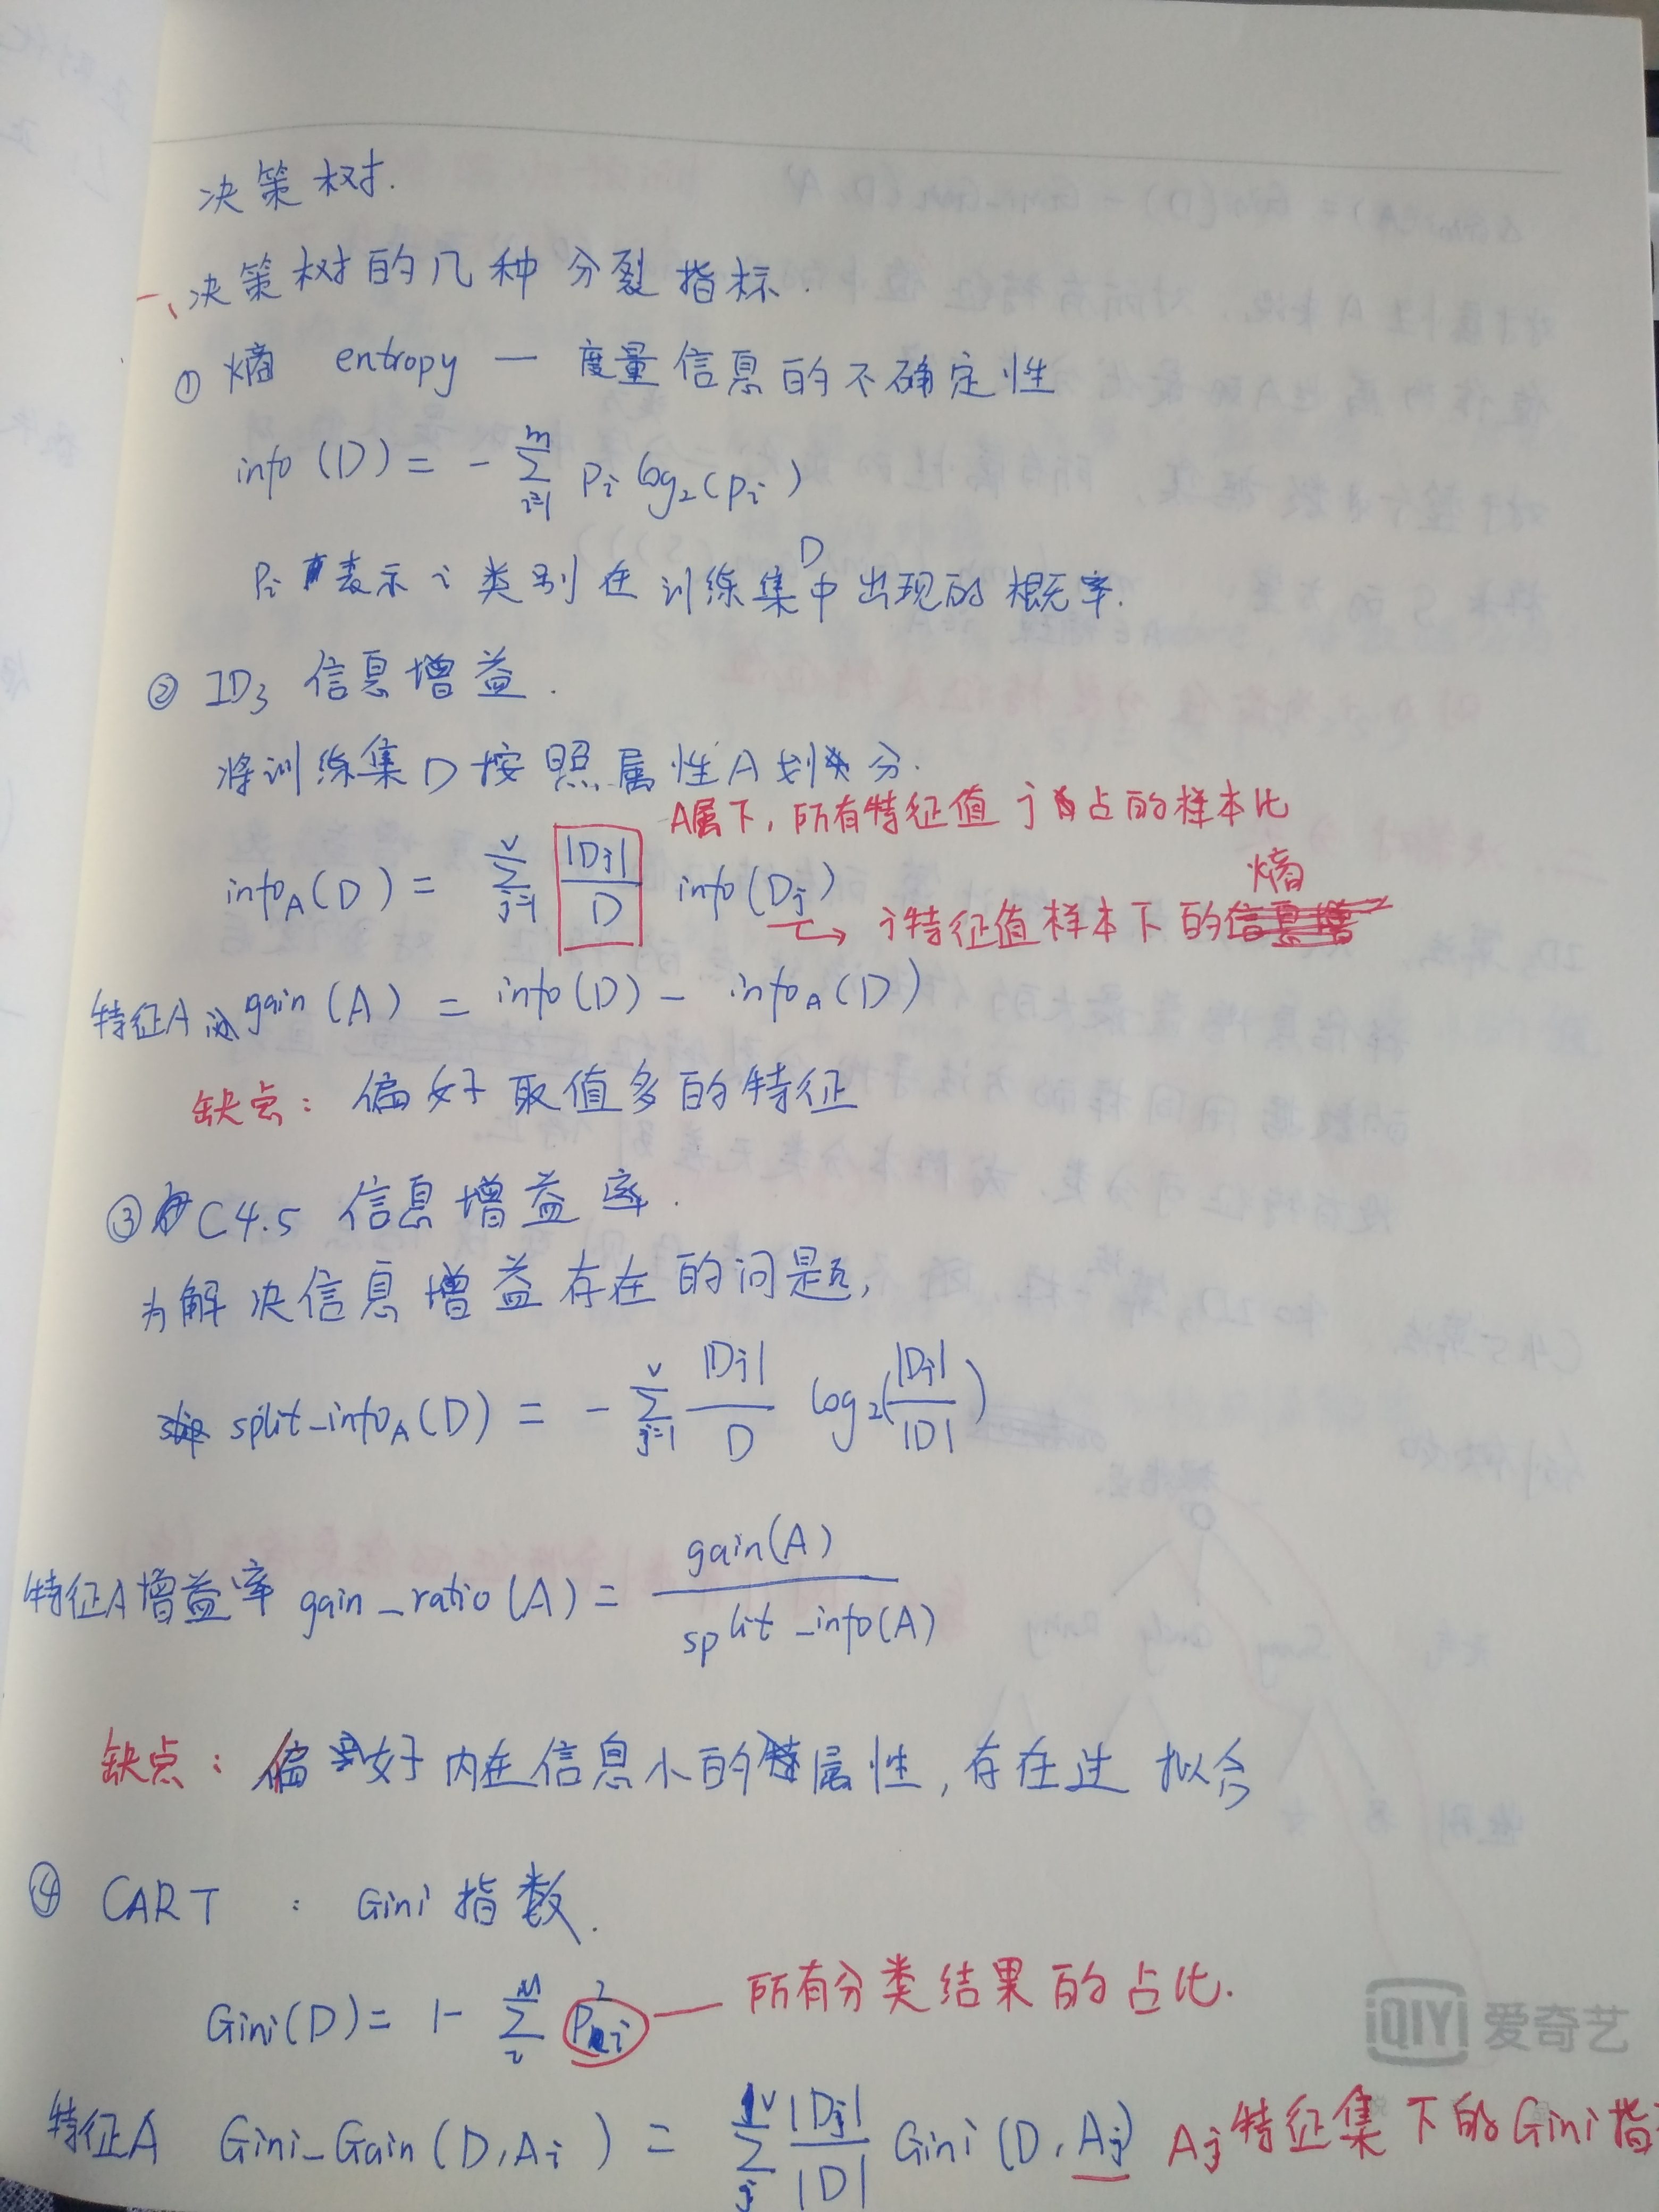 决策树.
一、决策树的几种分裂指标.
① 熵 entropy — 度量信息的不确定性
info(D) = - ∑_{i=1}^{m} p_i log_2(p_i)
P_i 表示 i 类别在训练集D中出现的概率.
② ID3 信息增益.
将训练集D按照属性A划分.
A属下,所有特征值 j 占的样本比
info_A(D) = ∑_{j=1}^{v} |Dj|/D info(Dj)
→ j特征值样本下的熵
特征A gain(A) = info(D) - info_A(D)
缺点: 偏好取值多的特征
③ C4.5 信息增益率.
为解决信息增益存在的问题,
split_info_A(D) = - ∑_{j=1}^{v} |Dj|/D log_2(|Dj|/|D|)
特征A增益率 gain_ratio(A) = gain(A)/split_info(A)
缺点: 偏好内在信息小的属性,存在过拟合
④ CART : Gini指数.
Gini(D) = 1- ∑_{i}^{M} P_i^2 — 所有分类结果的占比.
iQIYI 爱奇艺
特征A Gini_Gain(D,Ai) = ∑_{j}^{v} |Dj|/|D| Gini(D,Aj) Aj特征集下的Gini指